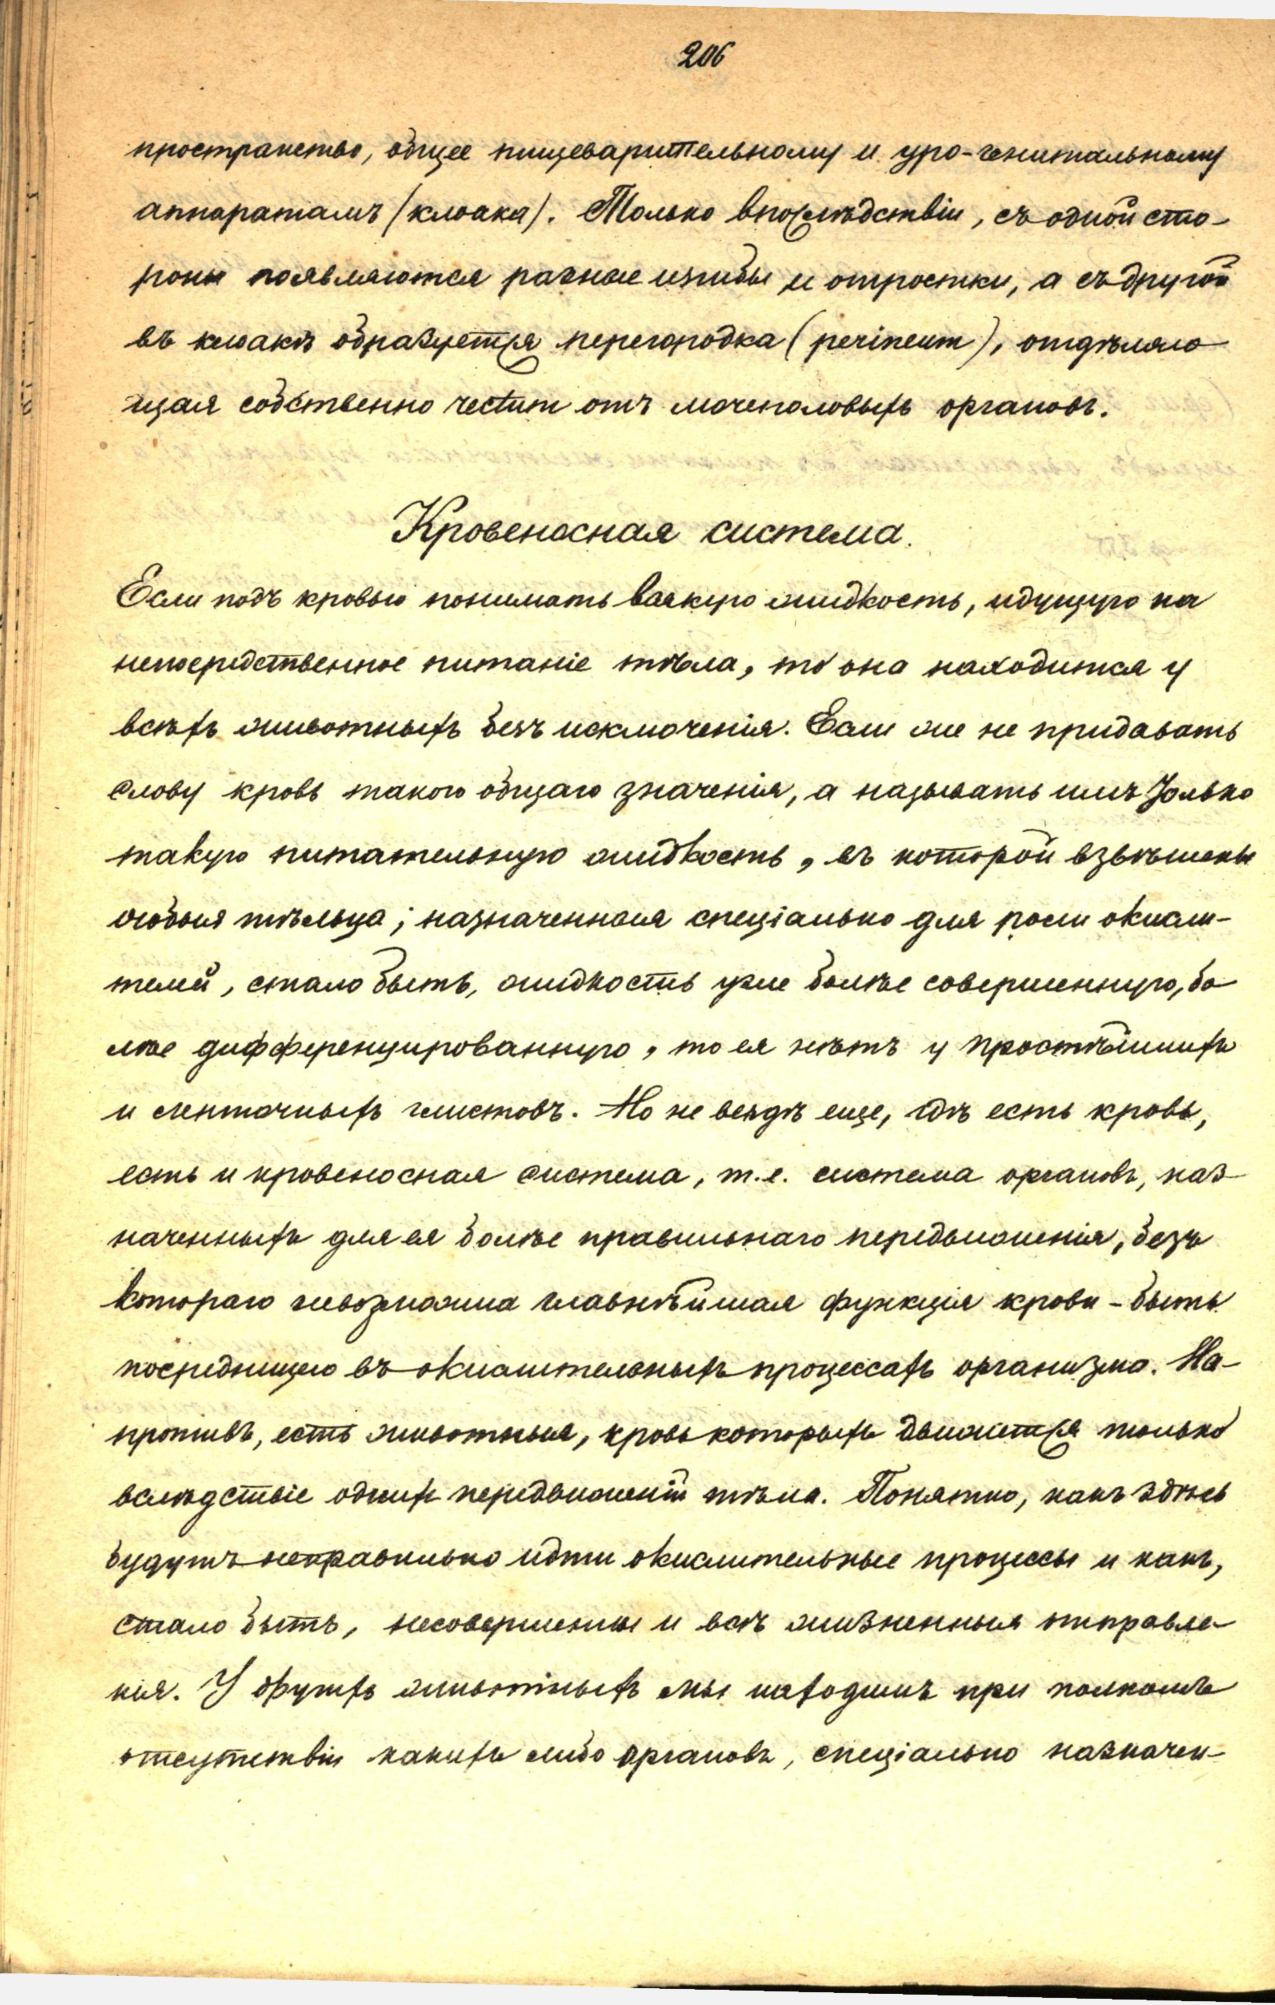 206
пространство, общее пищеварительному и уро-генитальному
аппаратамъ (клоака). Только впослѣдствіи, съ одной сто-
роны появляются разные изгибы и отростки, а съ другой
въ клоакѣ образуется перегородка (perineum), отдѣляю
щая собственно rectum отъ мочеполовыхъ органовъ.
Кровеносная система.
Если подъ кровью понимать всякую жидкость, идущую на
непосредственное питаніе тѣла, то она находится у
всѣхъ животныхъ безъ исключенія. Если же не придавать
слову кровь такого общаго значенія, а называть имъ только
такую питательную жидкость, въ которой взвѣшены
особыя тѣльца, назначенныя спеціально для роли окисли-
телей, стало быть, жидкость уже болѣе совершенную, бо
лѣе дифференцированную, то ея нѣтъ у простѣйшихъ
и ленточныхъ глистовъ. Но не вездѣ еще, гдѣ есть кровь,
есть и кровеносная система, т.е. система органовъ, наз-
наченныхъ для ея болѣе правильнаго передвиженія, безъ
котораго невозможна главнѣйшая функція крови - быть
посредницею въ окислительныхъ процессахъ организма. На-
противъ, есть животныя, кровь которыхъ движется только
вслѣдствіе однихъ передвиженій тѣла. Понятно, какъ здѣсь
будутъ неправильно идти окислительные процессы и какъ,
стало быть, несовершенны и всѣ жизненныя отправле-
нія. У другихъ животныхъ мы находимъ при полномъ
отсутствіи какихъ либо органовъ, спеціально назначен-